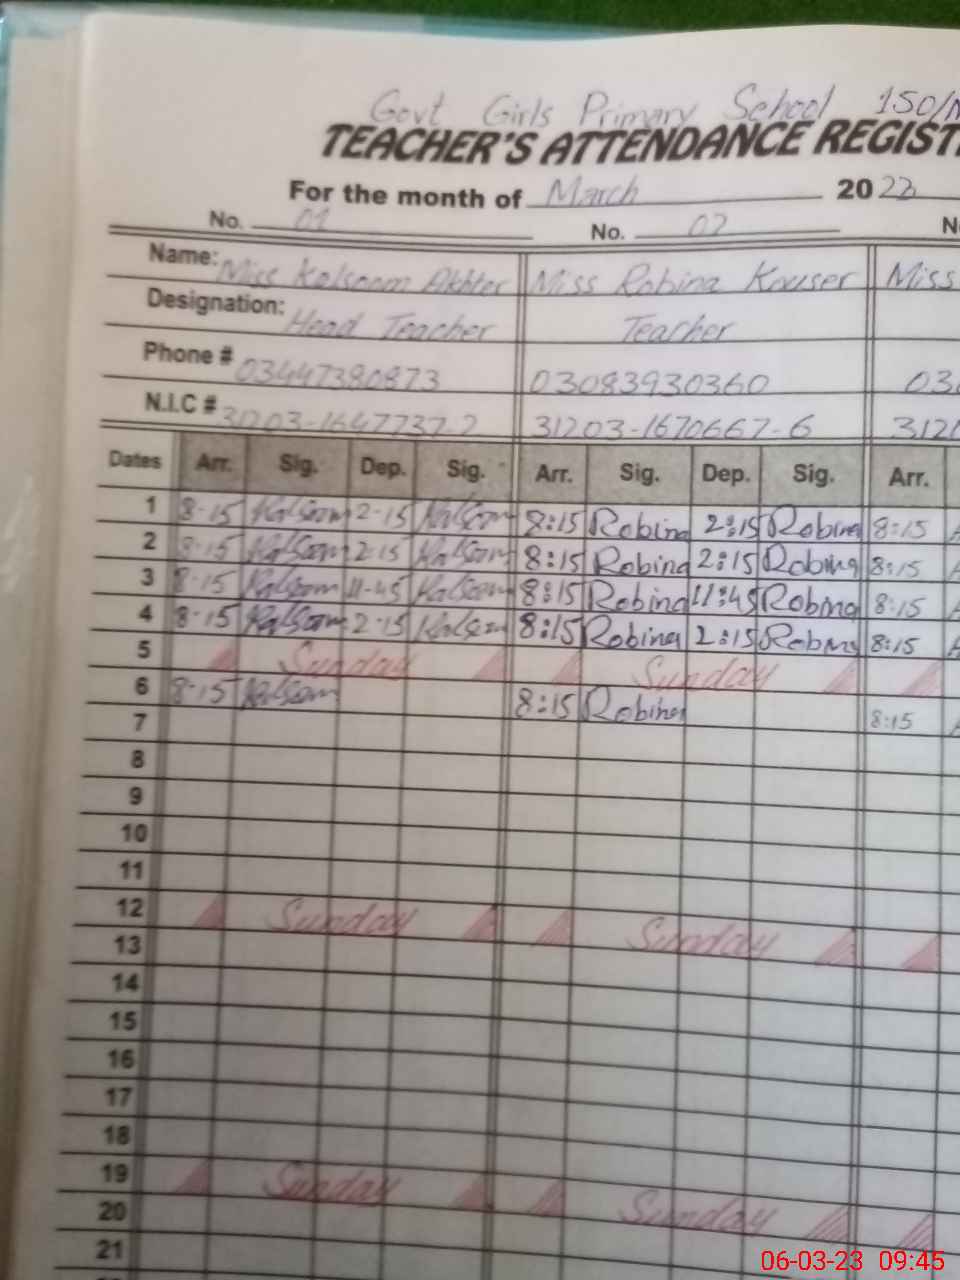 Govt Girls Primary School 150/N
TEACHER'S ATTENDANCE REGIST
For the month of March 2023
No. 01 No. 02 N
Name: Miss Kalsoom Akhter Miss Robina Kouser Miss
Designation: Head Teacher Teacher
Phone # 03447380873 03083930360 03
N.I.C # 31203-1647737-2 31203-1670667-6 312
Dates Arr. Sig. Dep. Sig. Arr. Sig. Dep. Sig. Arr.
1 8-15 Kalsoom 2-15 Kalsoom 8:15 Robina 2:15 Robina 8:15
2 8-15 Kalsoom 2-15 Kalsoom 8:15 Robina 2:15 Robina 8:15
3 8-15 Kalsoom 11-45 Kalsoom 8:15 Robina 11:45 Robina 8:15
4 8-15 Kalsoom 2-15 Kalsoom 8:15 Robina 2:15 Robina 8:15
5 Sunday Sunday
6 8-15 Kalsoom 8:15 Robina 8:15
7
8
9
10
11
12 Sunday Sunday
13
14
15
16
17
18
19 Sunday Sunday
20
21
06-03-23 09:45